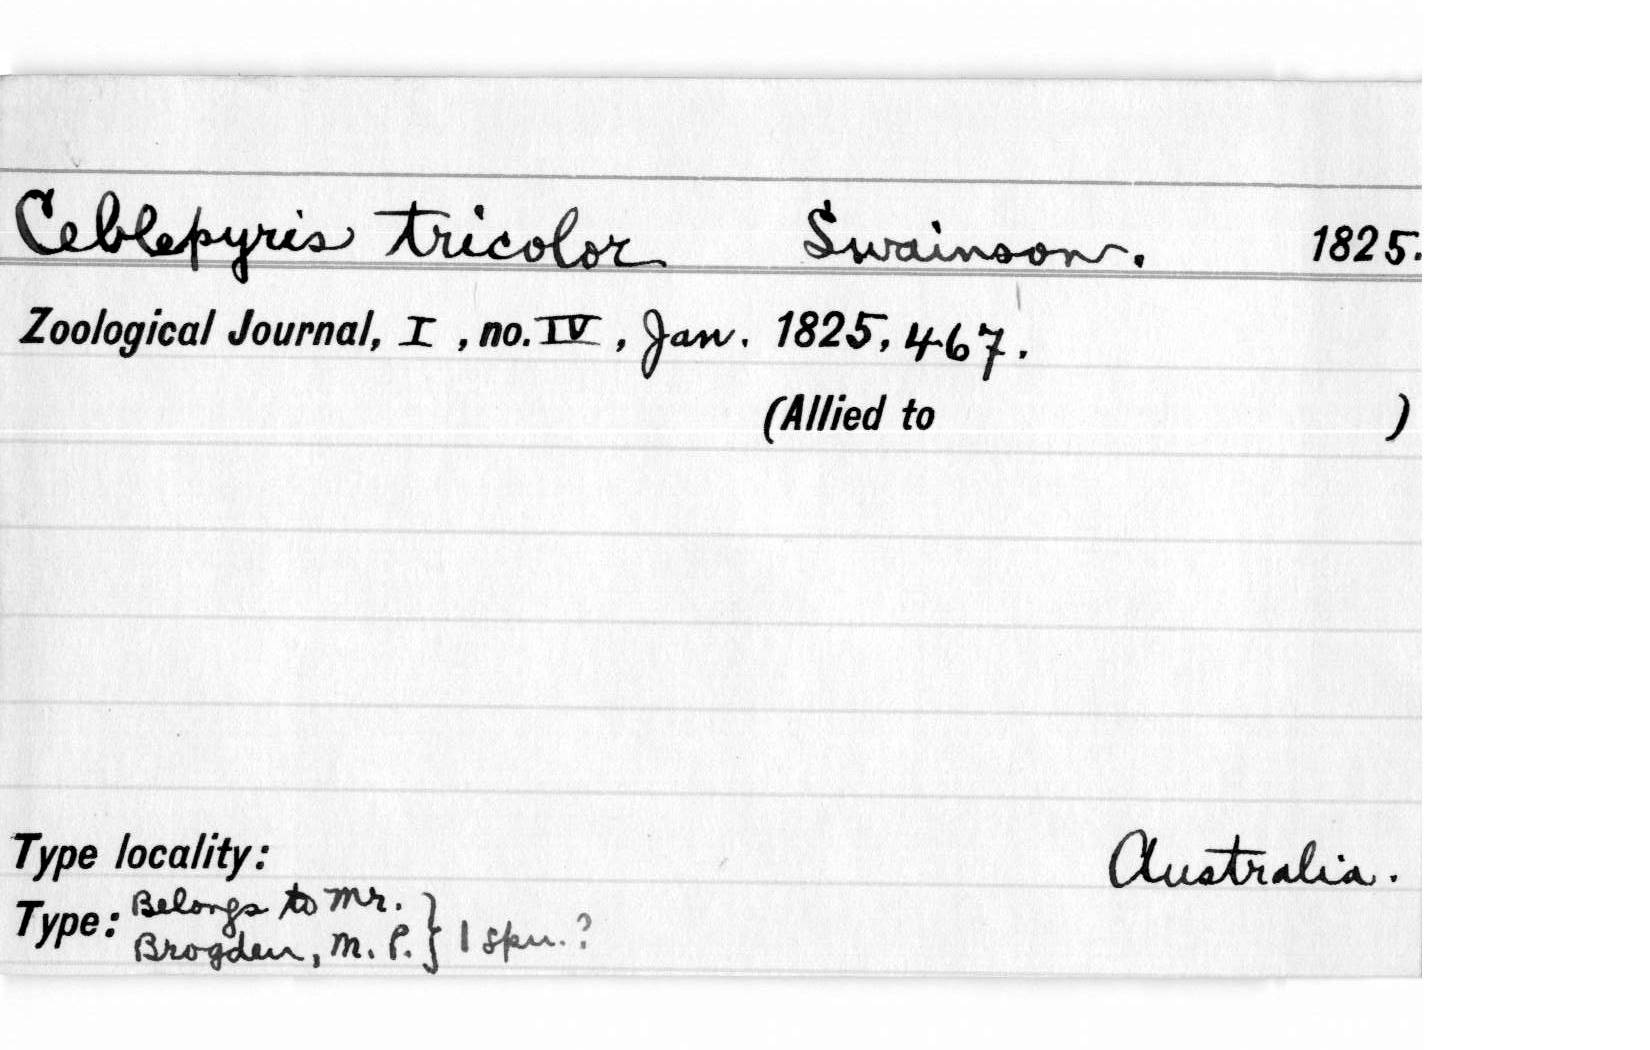 Ceblepyris tricolor Swainson. 1825.
Zoological Journal, I, no. IV, Jan. 1825, 467.
(Allied to )
Type locality: Australia.
Type: Belongs to Mr.
Brogden, M. P. } 1 spm. ?